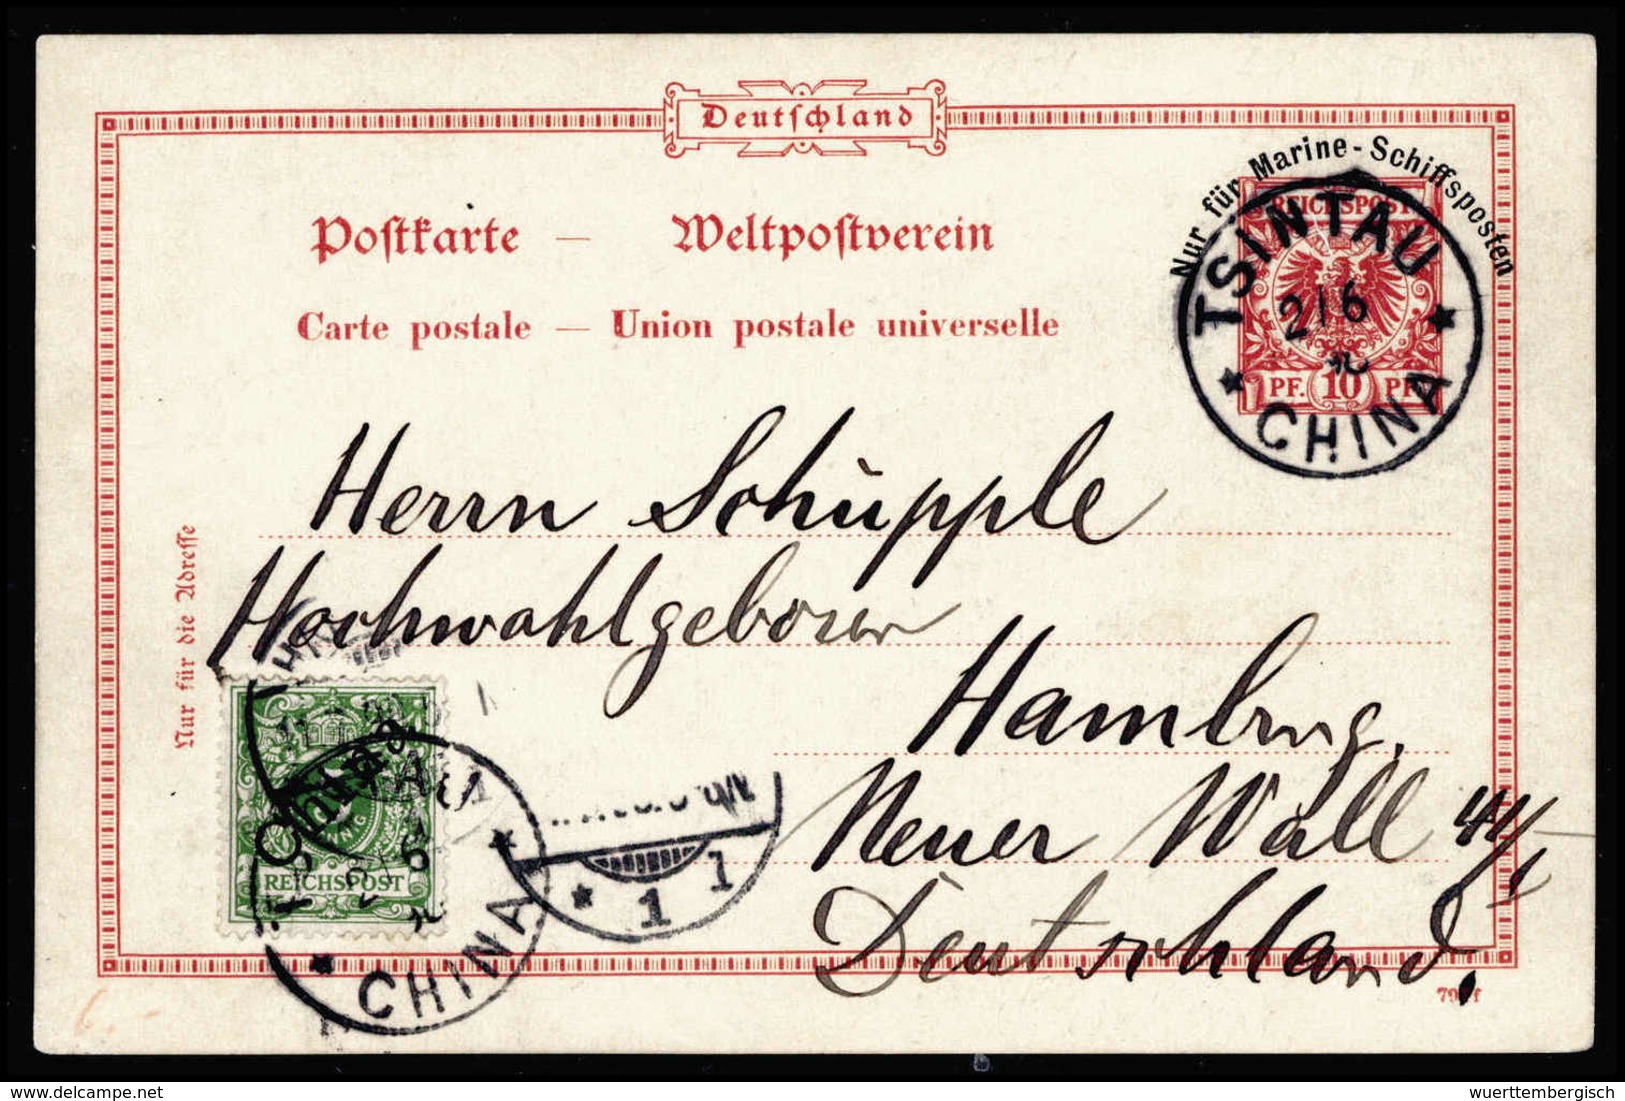 Deutschland
Nur für Marine-Schiffsposten
REICHSPOST
TSINTAU
2/6
CHINA
PF. 10 PF
Postkarte — Weltpostverein
Carte postale — Union postale universelle
Nur für die Adresse
Herrn Schüpple
Hochwohlgeboren
Hamburg,
Neuer Wall 44/I
Deutschland.
China
REICHSPOST
2/6
CHINA
1 1
delcampe.net
wuerttembergisch